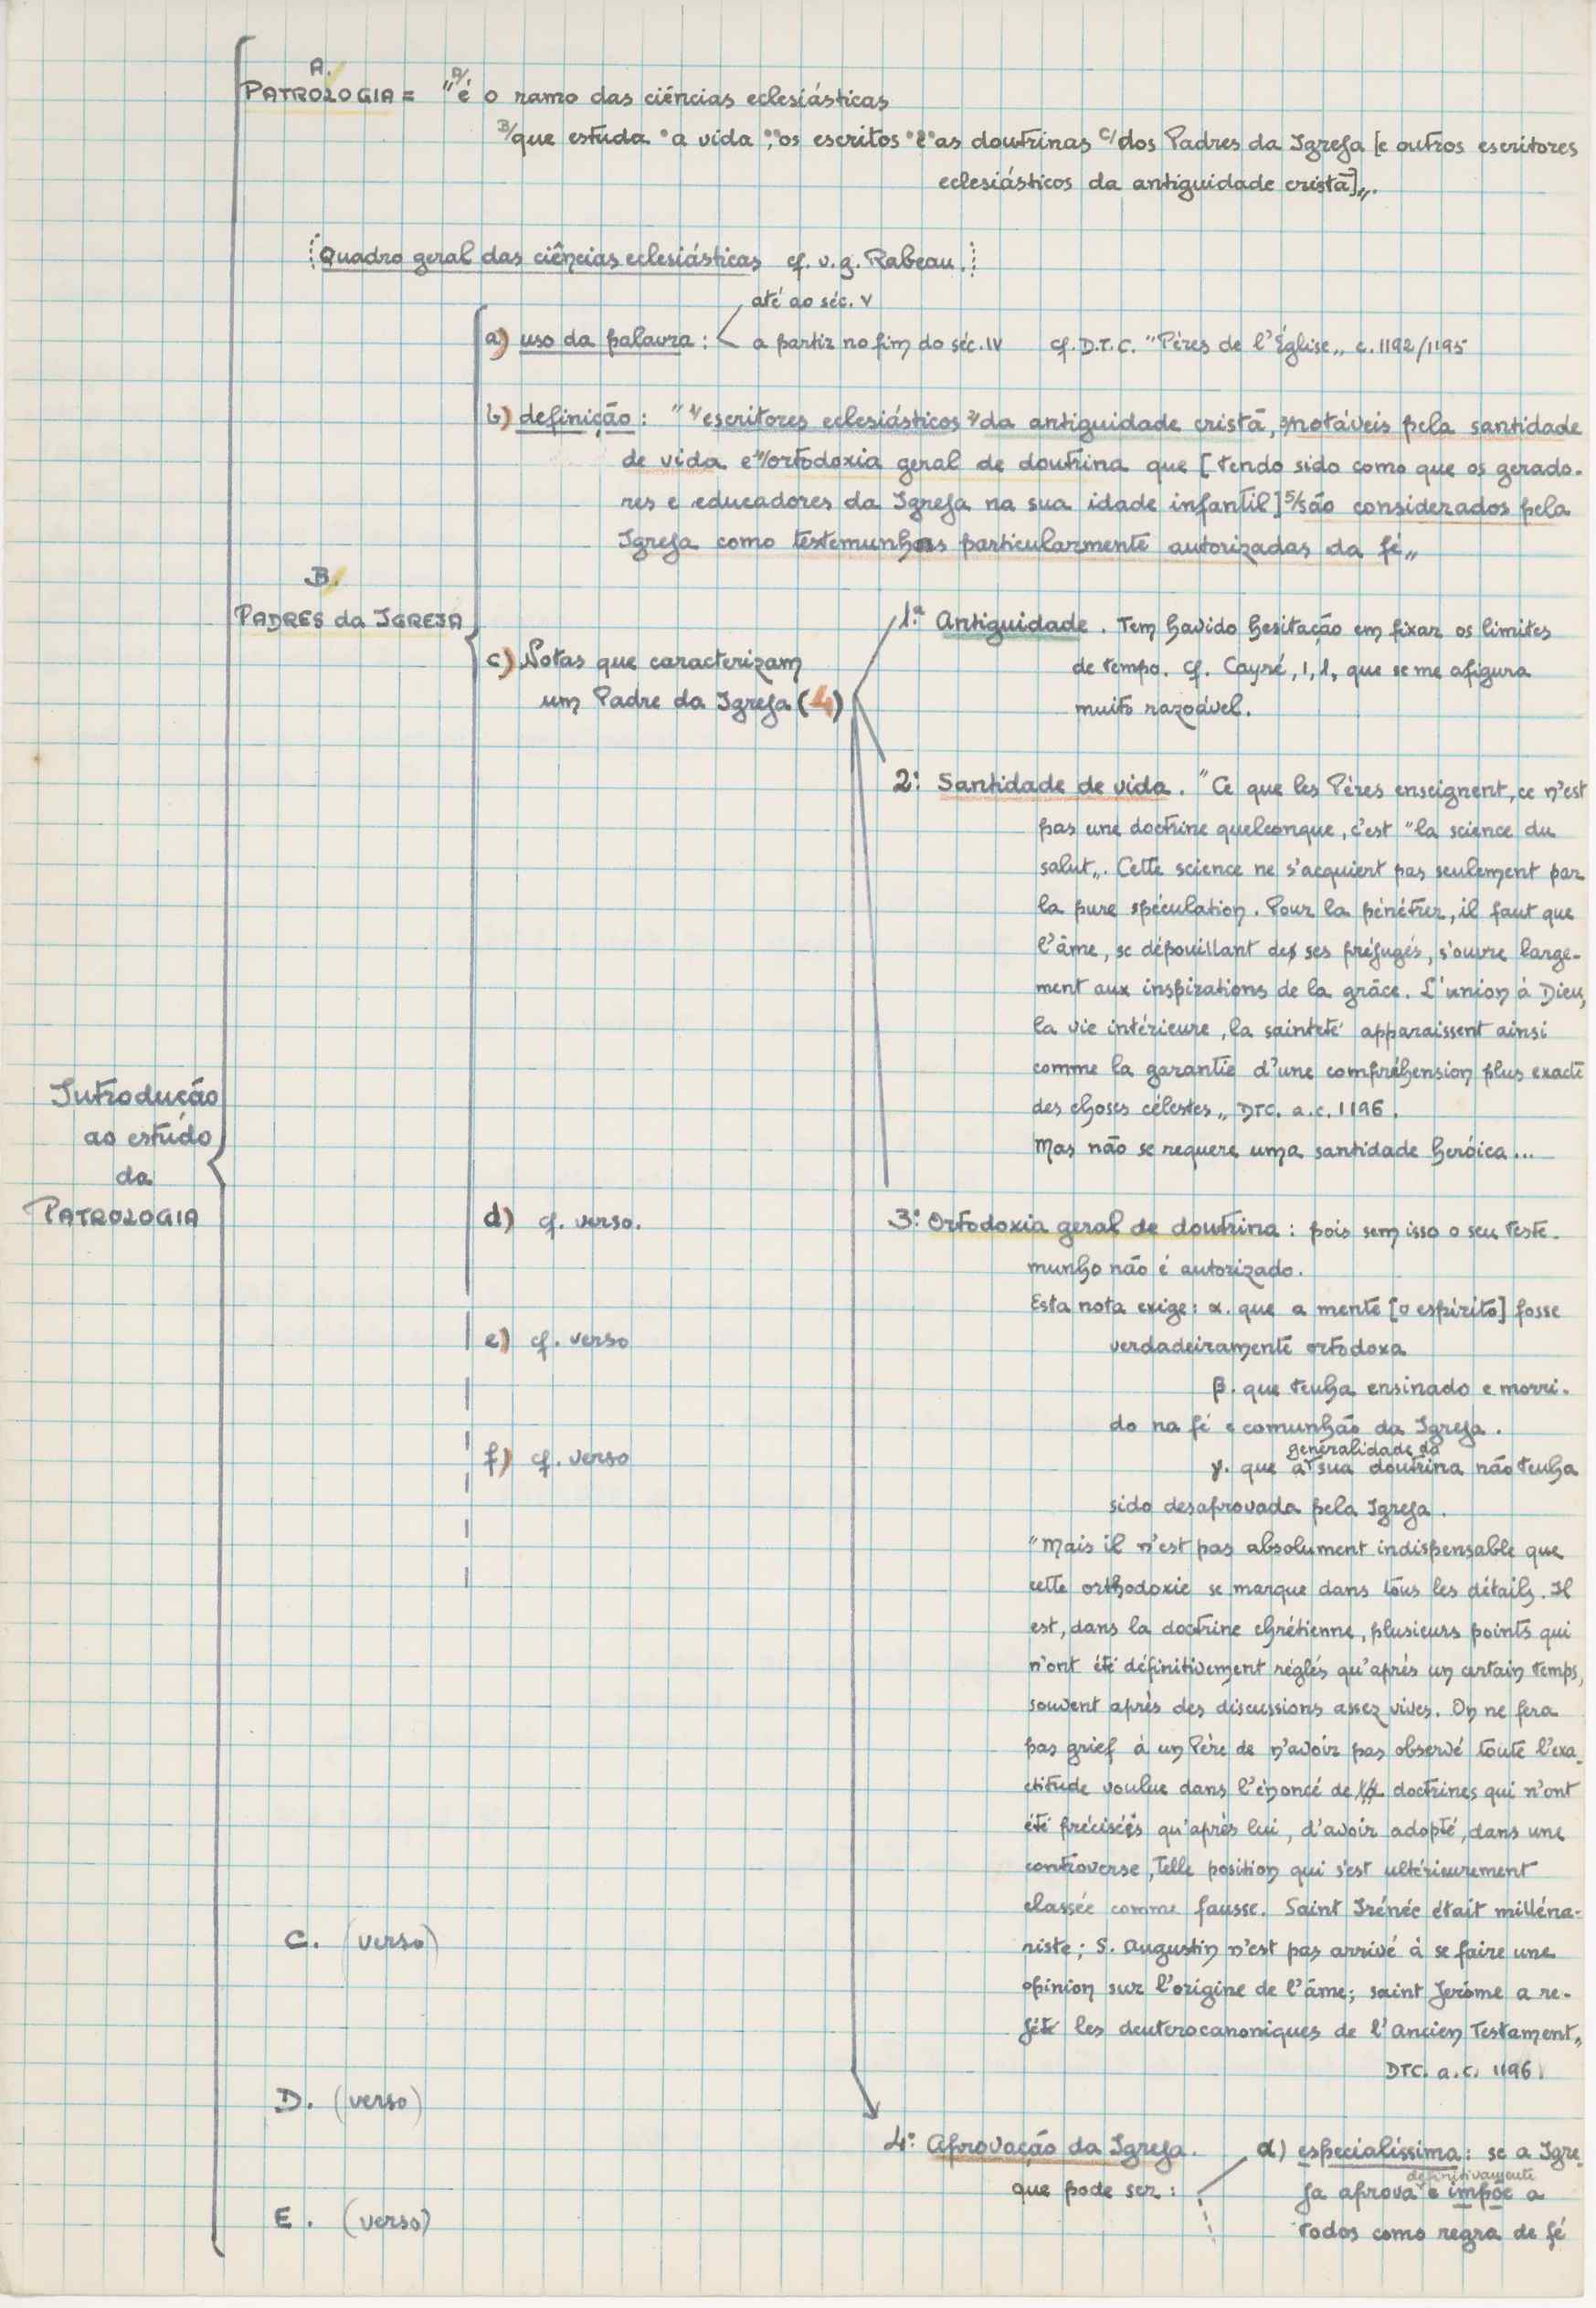 A.
PATROLOGIA = "A/ é o ramo das ciências eclesiásticas
B/ que estuda a vida, os escritos e as doutrinas C/ dos Padres da Igreja [e outros escritores
eclesiásticos da antiguidade cristã]„.
Quadro geral das ciências eclesiásticas cf. v.g. Rabeau.
até ao séc. V
a) uso da palavra: a partir no fim do séc. IV cf. D.T.C. "Pères de l'Église„ c. 1192/1195
b) definição: "1/ escritores eclesiásticos 2/ da antiguidade cristã, 3/ notáveis pela santidade
de vida e 4/ ortodoxia geral de doutrina que [tendo sido como que os gerado-
res e educadores da Igreja na sua idade infantil] 5/ são considerados pela
Igreja como testemunhas particularmente autorizadas da fé„
B.
PADRES da IGREJA
c) Notas que caracterizam
um Padre da Igreja (4)
1.ª Antiguidade. Tem havido hesitação em fixar os limites
de tempo. Cf. Cayré, 1, 1, que se me afigura
muito razoável.
2: Santidade de vida. "Ce que les Pères enseignent, ce n'est
pas une doctrine quelconque, c'est "la science du
salut„. Cette science ne s'acquiert pas seulement par
la pure spéculation. Pour la pénétrer, il faut que
l'âme, se dépouillant de ses préjugés, s'ouvre large-
ment aux inspirations de la grâce. L'union à Dieu,
la vie intérieure, la sainteté apparaissent ainsi
comme la garantie d'une compréhension plus exacte
des choses célestes„ DTC. a.c. 1196.
Mas não se requere uma santidade heróica...
Introdução
ao estudo
da
PATROLOGIA
d) cf. verso.
3: Ortodoxia geral de doutrina: pois sem isso o seu teste-
munho não é autorizado.
Esta nota exige: α. que a mente [o espírito] fosse
verdadeiramente ortodoxa
e) cf. verso
β. que tenha ensinado e morri-
do na fé e comunhão da Igreja.
f) cf. verso
generalidade da
γ. que a sua doutrina não tenha
sido desaprovada pela Igreja.
"Mais il n'est pas absolument indispensable que
cette orthodoxie se marque dans tous les détails. Il
est, dans la doctrine chrétienne, plusieurs points qui
n'ont été définitivement réglés qu'après un certain temps,
souvent après des discussions assez vives. On ne fera
pas grief à un Père de n'avoir pas observé toute l'exa-
ctitude voulue dans l'énoncé de doctrines qui n'ont
été précisées qu'après lui, d'avoir adopté, dans une
controverse, telle position qui s'est ultérieurement
classée comme fausse. Saint Irénée était milléna-
riste; S. Augustin n'est pas arrivé à se faire une
opinion sur l'origine de l'âme; saint Jerôme a re-
jété les deuterocanoniques de l'Ancien Testament„
DTC. a.c. 1196.
C. (verso)
D. (verso)
4: Aprovação da Igreja.
que pode ser:
α) especialíssima: se a Igre-
definitivamente
ja aprova e impõe a
todos como regra de fé
E. (verso)